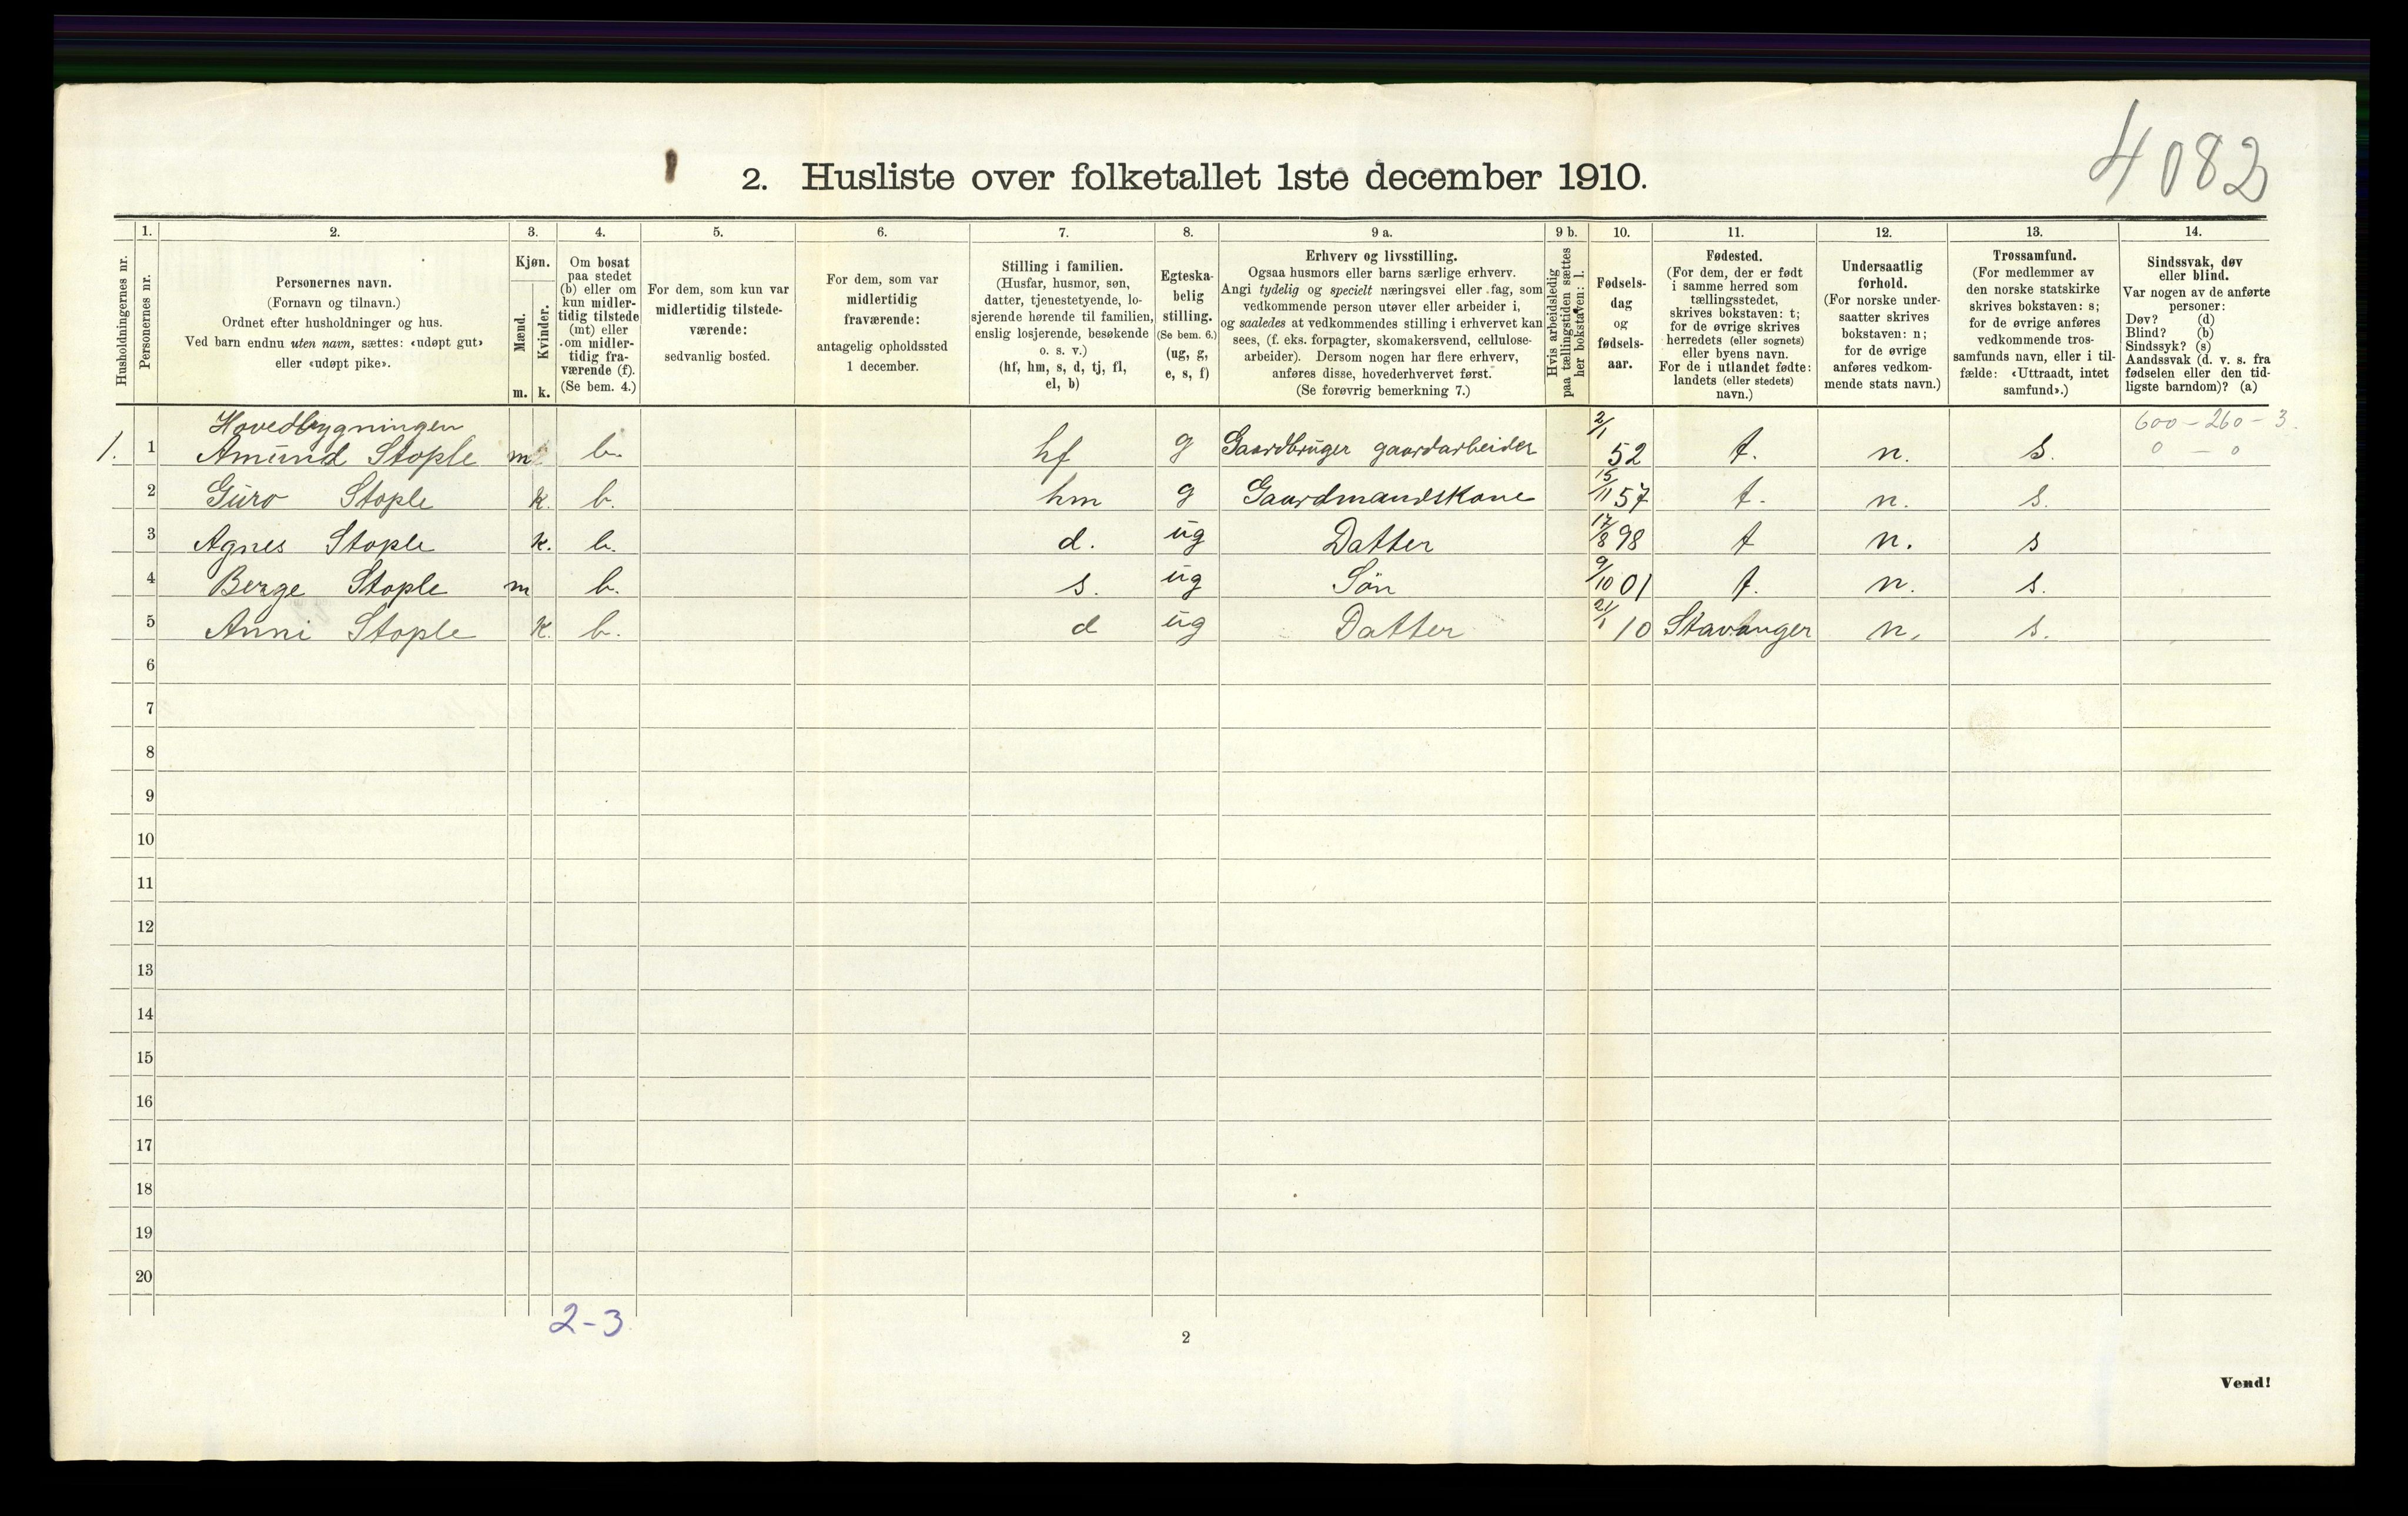 4082
2. Husliste over folketallet 1ste december 1910.
1. 2. 3. 4. 5. 6. 7. 8. 9 a. 9 b. 10. 11. 12. 13. 14.
Husholdningernes nr.
Personernes nr.
Personernes navn.
(Fornavn og tilnavn.)
Ordnet efter husholdninger og hus.
Ved barn endnu uten navn, sættes: «udøpt gut»
eller «udøpt pike».
Kjøn.
Mænd.
Kvinder.
m. k.
Om bosat
paa stedet
(b) eller om
kun midler-
tidig tilstede
(mt) eller
om midler-
tidig fra-
værende (f).
(Se bem. 4.)
For dem, som kun var
midlertidig tilstede-
værende:
sedvanlig bosted.
For dem, som var
midlertidig
fraværende:
antagelig opholdssted
1 december.
Stilling i familien.
(Husfar, husmor, søn,
datter, tjenestetyende, lo-
sjerende hørende til familien,
enslig losjerende, besøkende
o. s. v.)
(hf, hm, s, d, tj, fl,
el, b)
Egteska-
belig
stilling.
(Se bem. 6.)
(ug, g,
e, s, f)
Erhverv og livsstilling.
Ogsaa husmors eller barns særlige erhverv.
Angi tydelig og specielt næringsvei eller fag, som
vedkommende person utøver eller arbeider i,
og saaledes at vedkommendes stilling i erhvervet kan
sees, (f. eks. forpagter, skomakersvend, cellulose-
arbeider). Dersom nogen har flere erhverv,
anføres disse, hovederhvervet først.
(Se forøvrig bemerkning 7.)
Hvis arbeidsledig
paa tællingstiden sættes
her bokstaven: l.
Fødsels-
dag
og
fødsels-
aar.
Fødested.
(For dem, der er født
i samme herred som
tællingsstedet,
skrives bokstaven: t;
for de øvrige skrives
herredets (eller sognets)
eller byens navn.
For de i utlandet fødte:
landets (eller stedets)
navn.)
Undersaatlig
forhold.
(For norske under-
saatter skrives
bokstaven: n;
for de øvrige
anføres vedkom-
mende stats navn.)
Trossamfund.
(For medlemmer av
den norske statskirke
skrives bokstaven: s;
for de øvrige anføres
vedkommende tros-
samfunds navn, eller i til-
fælde: «Uttraadt, intet
samfund».)
Sindssvak, døv
eller blind.
Var nogen av de anførte
personer:
Døv? (d)
Blind? (b)
Sindssyk? (s)
Aandssvak (d. v. s. fra
fødselen eller den tid-
ligste barndom)? (a)
Hovedbygningen 600 - 260 - 3.
1. 1 Amund Stople m b. hf g Gaardbruger gaardarbeider 2/1 52 t. n. s. 0 - 0
2 Guro Stople k. b. hm g Gaardmandskone 15/11 57 t. n. s.
3 Agnes Stople k. b. d. ug Datter 17/8 98 t n. s
4 Berge Stople m b. s. ug Søn 9/10 01 t. n. s.
5 Anni Stople k. b. d ug Datter 21/1 10 Stavanger n. s.
6
7
8
9
10
11
12
13
14
15
16
17
18
19
20
2-3
2
Vend!